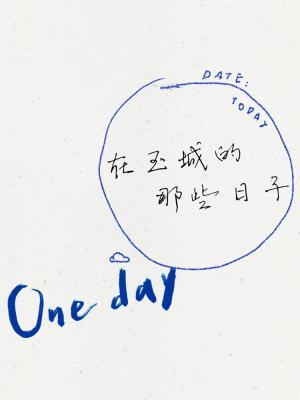 DATE:
TODAY
在玉城的
那些日子
One day